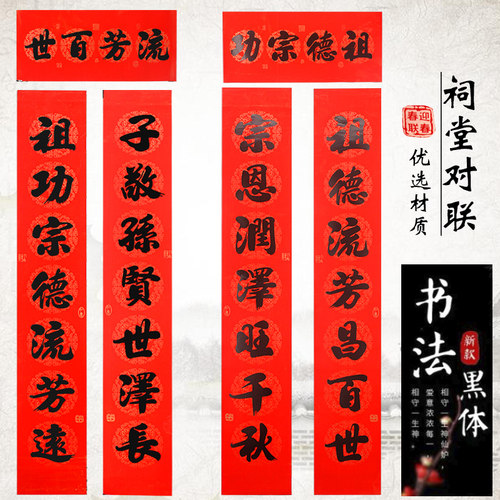 流芳百世
祖德宗功
子敬孫賢世澤長
祖功宗德流芳遠
祖德流芳昌百世
宗恩潤澤旺千秋
祠堂对联
迎春
春联
优选材质
书法
新款
黑体
相守一生神仙妒，
爱意浓浓每一
相守一生神。